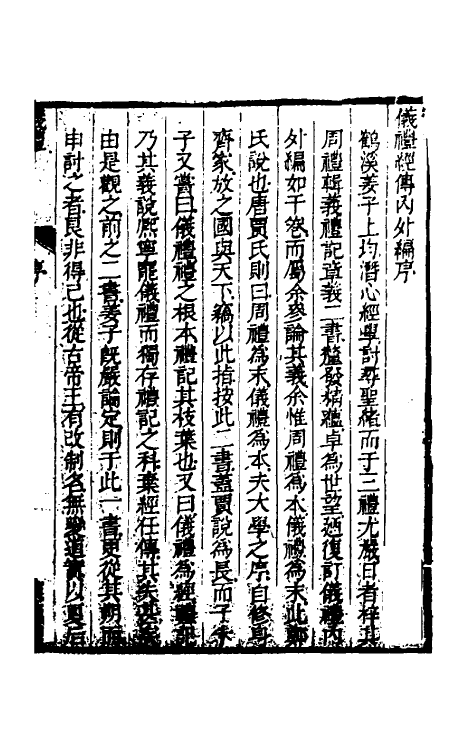 儀禮經傳內外編序
鶴溪姜子上均潛心經學討尋聖緒而于三禮尤嚴日者梓其
周禮輯義禮記章義二書釐發精蘊卓為世望廼復訂儀禮內
外編如干卷而屬余參論其義余惟周禮為本儀禮為末此鄭
氏說也唐賈氏則曰周禮為末儀禮為本夫大學之序自修身
齊家放之國與天下竊以此指按此二書蓋賈說為長而子朱
子又嘗曰儀禮禮之根本禮記其枝葉也又曰儀禮為經禮記
乃其義說熙寧罷儀禮而獨存禮記之科棄經任傳其失甚矣
由是觀之前之二書姜子旣嚴論定則于此一書更從其朔而
申討之者良非得已也從古帝王有改制名無變道實以夏后
序